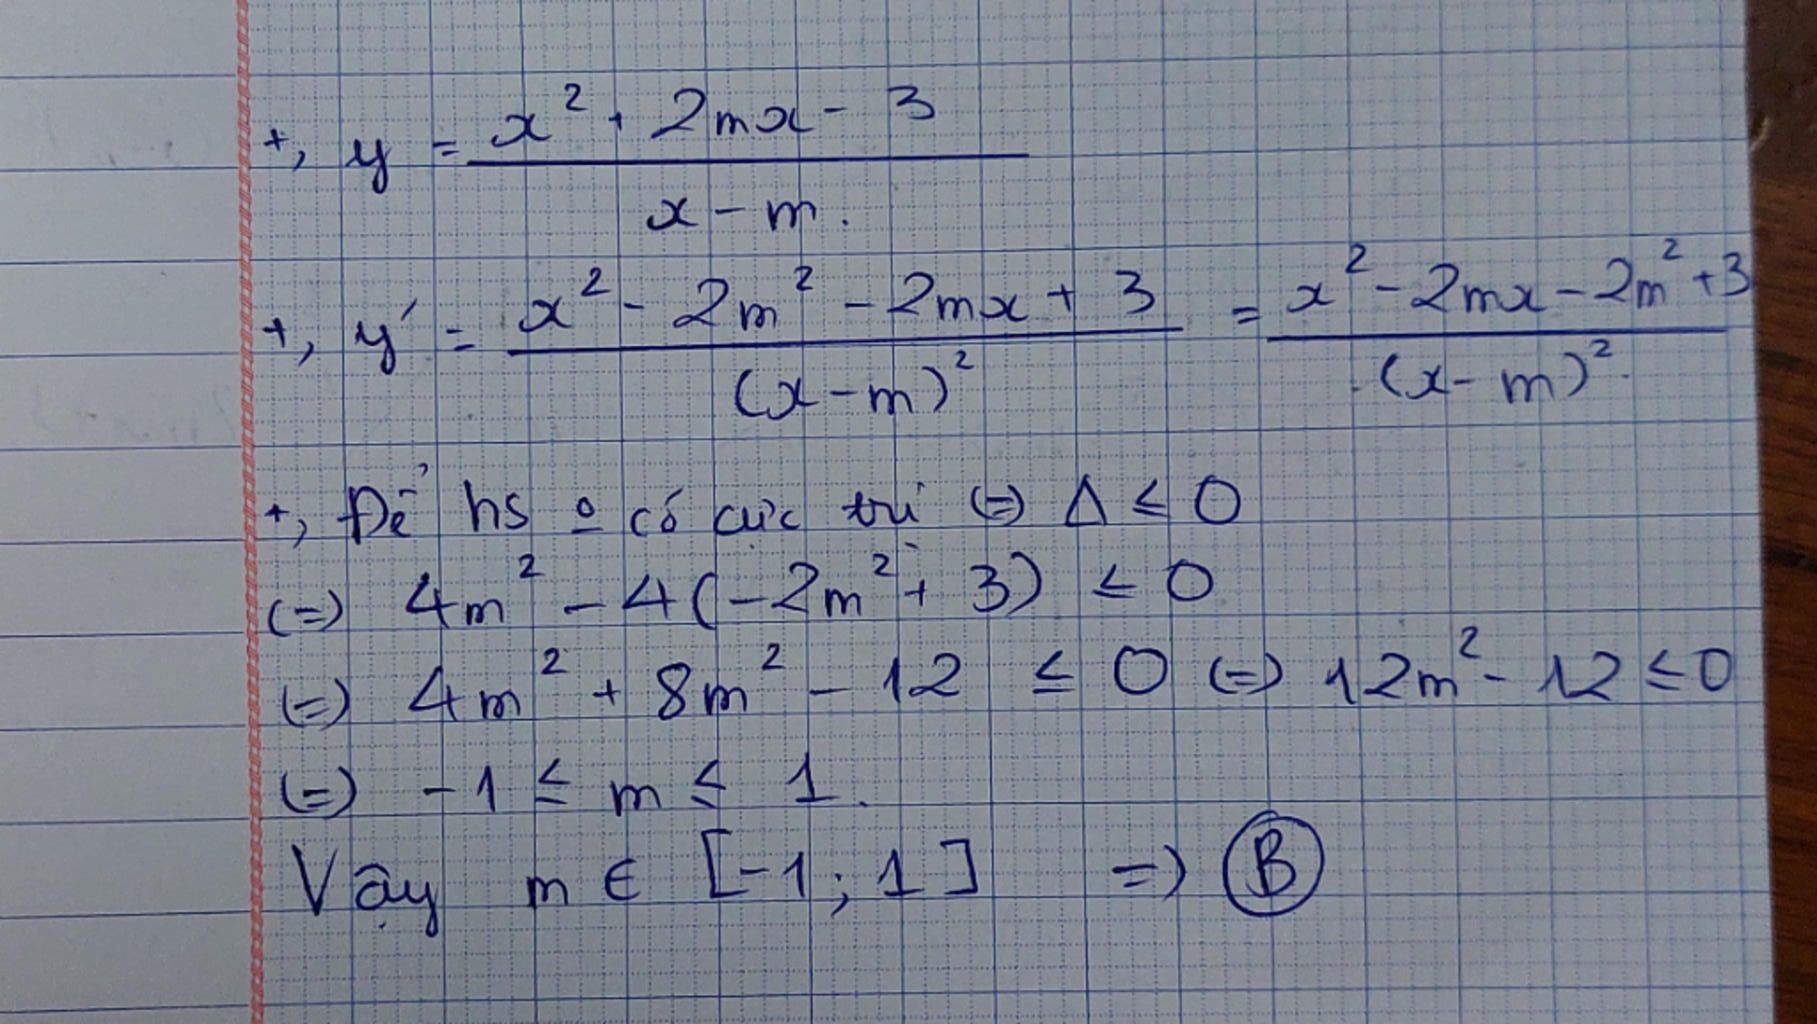 +, y = \frac{x² + 2mx - 3}{x - m.}
+, y' = \frac{x² - 2m² - 2mx + 3}{(x - m)²} = \frac{x² - 2mx - 2m² + 3}{(x - m)².}
+, Để hs o có cực trị (=) Δ ≤ 0
(=) 4m² - 4(-2m² + 3) ≤ 0
(=) 4m² + 8m² - 12 ≤ 0 (=) 12m² - 12 ≤ 0
(=) -1 ≤ m ≤ 1.
Vậy m ∈ [-1; 1] => B